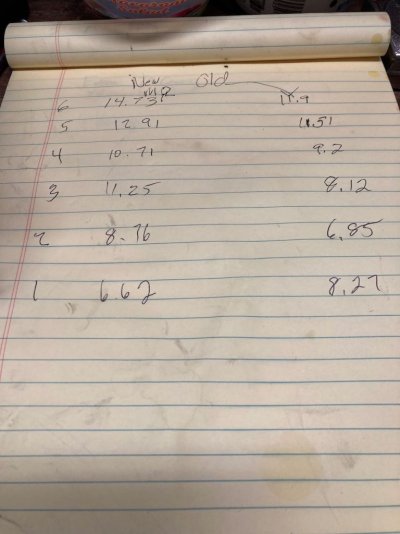 New Old
6 14.73 11.9
5 12.91 11.51
4 10.71 9.2
3 11.25 8.12
2 8.76 6.85
1 6.62 8.27